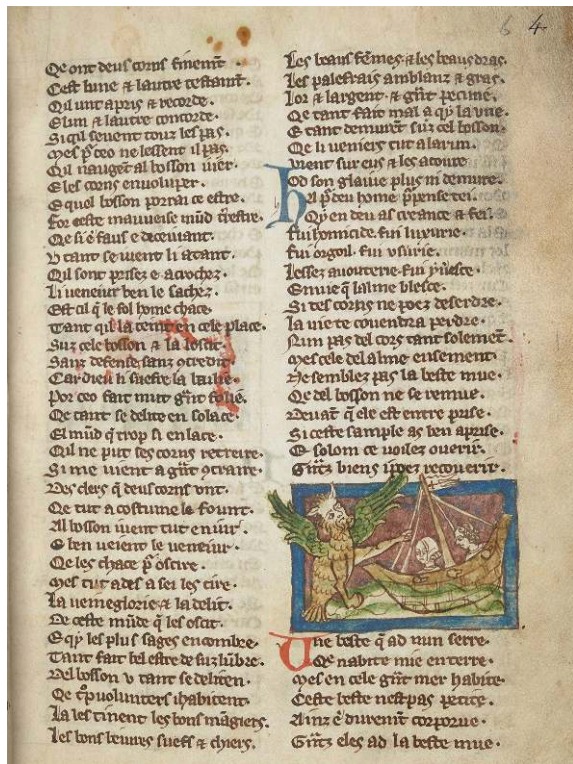 6 4
Qe ont deus corns finement
Cest lune & lautre testament.
Qil unt apris & recorde.
E lun & lautre concorde.
Si qil sevent touz les pas.
Mes p̄ ceo ne lessent il pas.
Qil naugent al bosson iuer.
E les corns envoluper.
E quel bosson porrai ce estre.
For ceste mauueise mūd terestre.
Qe si ē faus e deceiuant.
V tant se uient li atant.
Qil sont prisez e acrochez.
Li veneiur ben le sachez.
Est cil q̄ le fol home chace.
Tant qil la ceint en cele place.
Suz cele bosson & la losait.
Sanz defense, sanz ꝯtredit.
Car dieu li suefre la baillie.
Por ceo fait mut g̃nt folie.
Qe tant se delite en solace.
El mūd q̄ trop si enlace.
Qil ne put ses corns retreire.
Si me vient a g̃nt ꝯtraire.
Des clers q̄ deus corns vnt.
Qe tut a costume le fount.
Al bosson uient tut en iuir.
E ben veient le veneiur.
Qe les chace p̄ oscire.
Mes tut ades a sei les tire.
La veine glorie & la delit.
De ceste mūde q̄ les oscit.
E qy les plus sages encombre.
Tant fait bel estre desuz lūbre.
Del bosson v tant se deliten.
Qe trop uolunters i habitent.
La les tinent les bons mangiers.
Les bons beiures suefs & chiers.
Les beaus femes & les beaus dras.
Les palefrais amblanz & gras.
Lor & largent & g̃nt pecune.
Qe tant fait mal a qy la vne.
E tant demurēt suz cel bosson.
Qe li veniers tut a larun.
Vient sur eus & les acoure
Od son glaiue plus ni demure.
Ha p̄deu home p̄pense tei.
Qy en deu as creance & fei.
Fui homicide. fui luxurie.
Fui orgoil. fui usurie.
Lessez auouterie. fui yuresce.
Enuie q̄ lalme blesce.
Si tes corns ne poez deserdre.
La vie te couendra perdre.
Nun pas del cors tant solemēt.
Mes cele del alme ensement.
Ne semblez pas la beste mue.
Qe del bosson ne se remue.
Deuāt q̄ ele est entre prise.
Si ceste sample as ben aprise.
E solom ce voilez ouerir.
G̃nz biens i poez recouerir.
Une beste q̄ ad nun serre.
Qe nabite mie en terre.
Mes en cele g̃nt mer habite.
Ceste beste nest pas petite.
Ainz ē durement corporue.
G̃nz eles ad la beste mue.